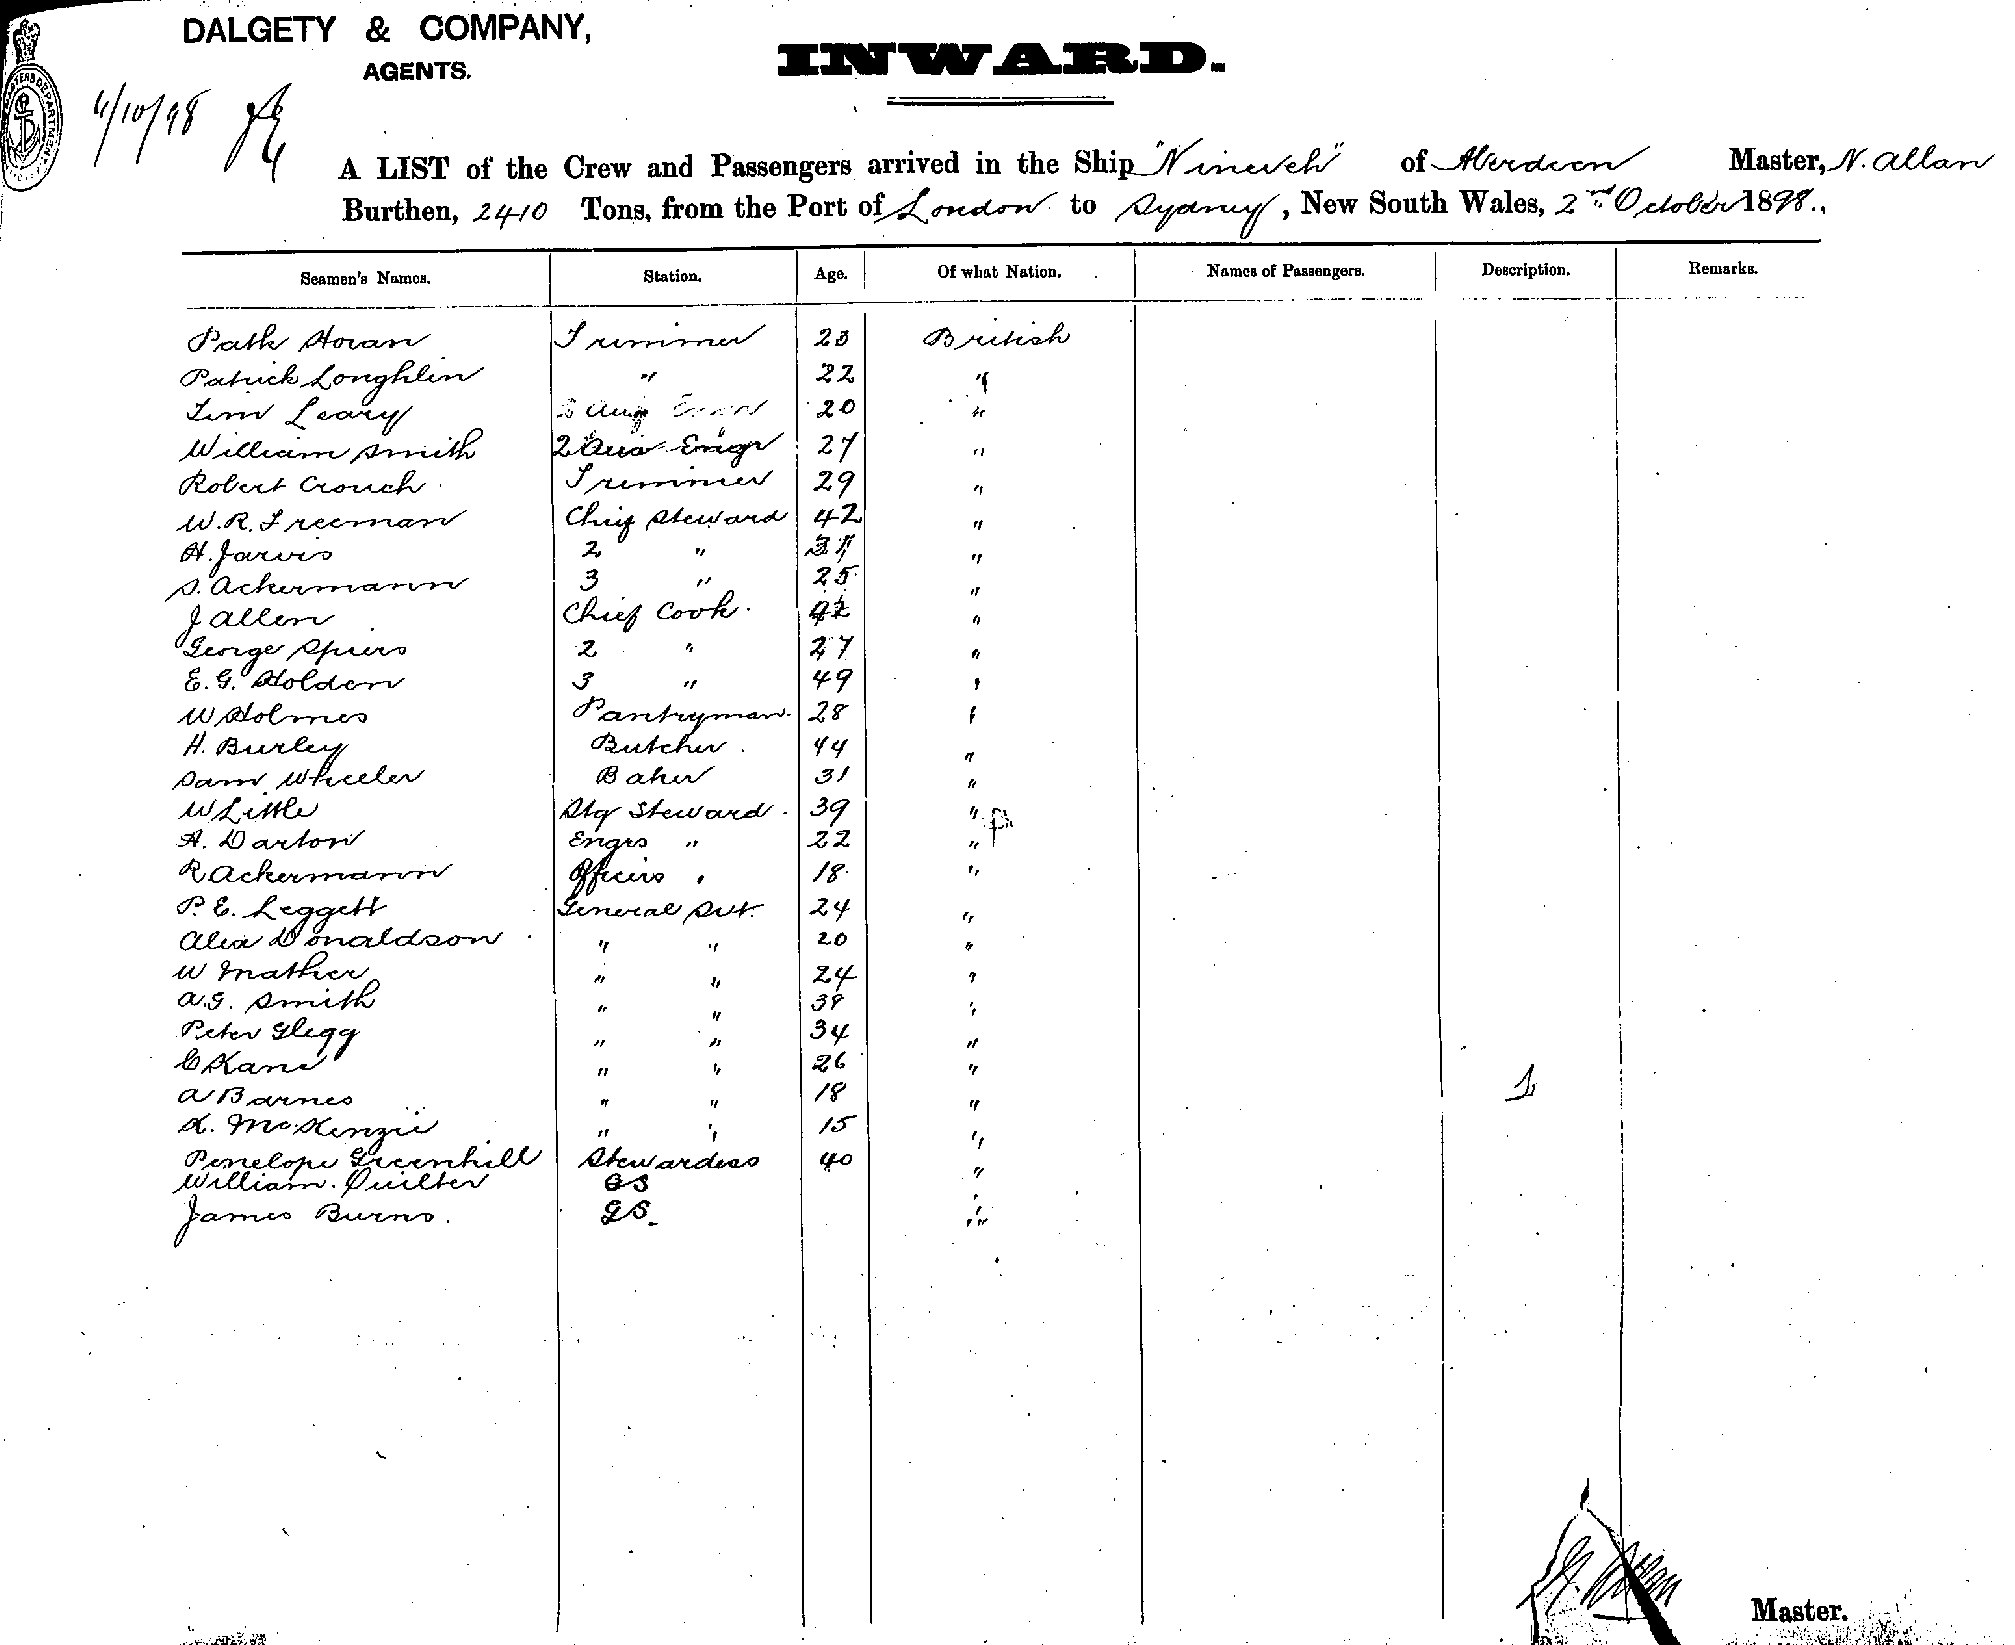 DALGETY & COMPANY,
AGENTS.
INWARD.
4/10/98
A LIST of the Crew and Passengers arrived in the Ship "Nineveh" of Aberdeen Master, N. Allan
Burthen, 2410 Tons, from the Port of London to Sydney, New South Wales, 2nd October 1898.
Seamen's Names. Station. Age. Of what Nation. Names of Passengers. Description. Remarks.
Patk Horan Trimmer 23 British
Patrick Loughlin " 22 "
Tim Leary 20 "
William Smith 2 Engr 27 "
Robert Crouch Trimmer 29 "
W. R. Freeman Chief Steward 42 "
H. Jarvis 2 " "
S. Ackermann 3 " 25 "
J Allen Chief Cook "
George Spiers 2 " 27 "
E. G. Holden 3 " 49 "
W Holmes Pantryman 28 "
H. Burley Butcher 44 "
Sam Wheeler Baker 31 "
W Little Stg Steward 39 "
A. Darton Engrs " 22 "
R Ackermann Officers " 18 "
P. E. Leggett General Svt. 24 "
Alex Donaldson " " 20 "
W Mather " " 24 "
A. G. Smith " " 38 "
Peter Glegg " " 34 "
C Kane " " 26 "
A Barnes " " 18 "
K. McKenzie " " 15 "
Penelope Greenhill Stewardess 40 "
William Quilter GS "
James Burns GS. "
Master.